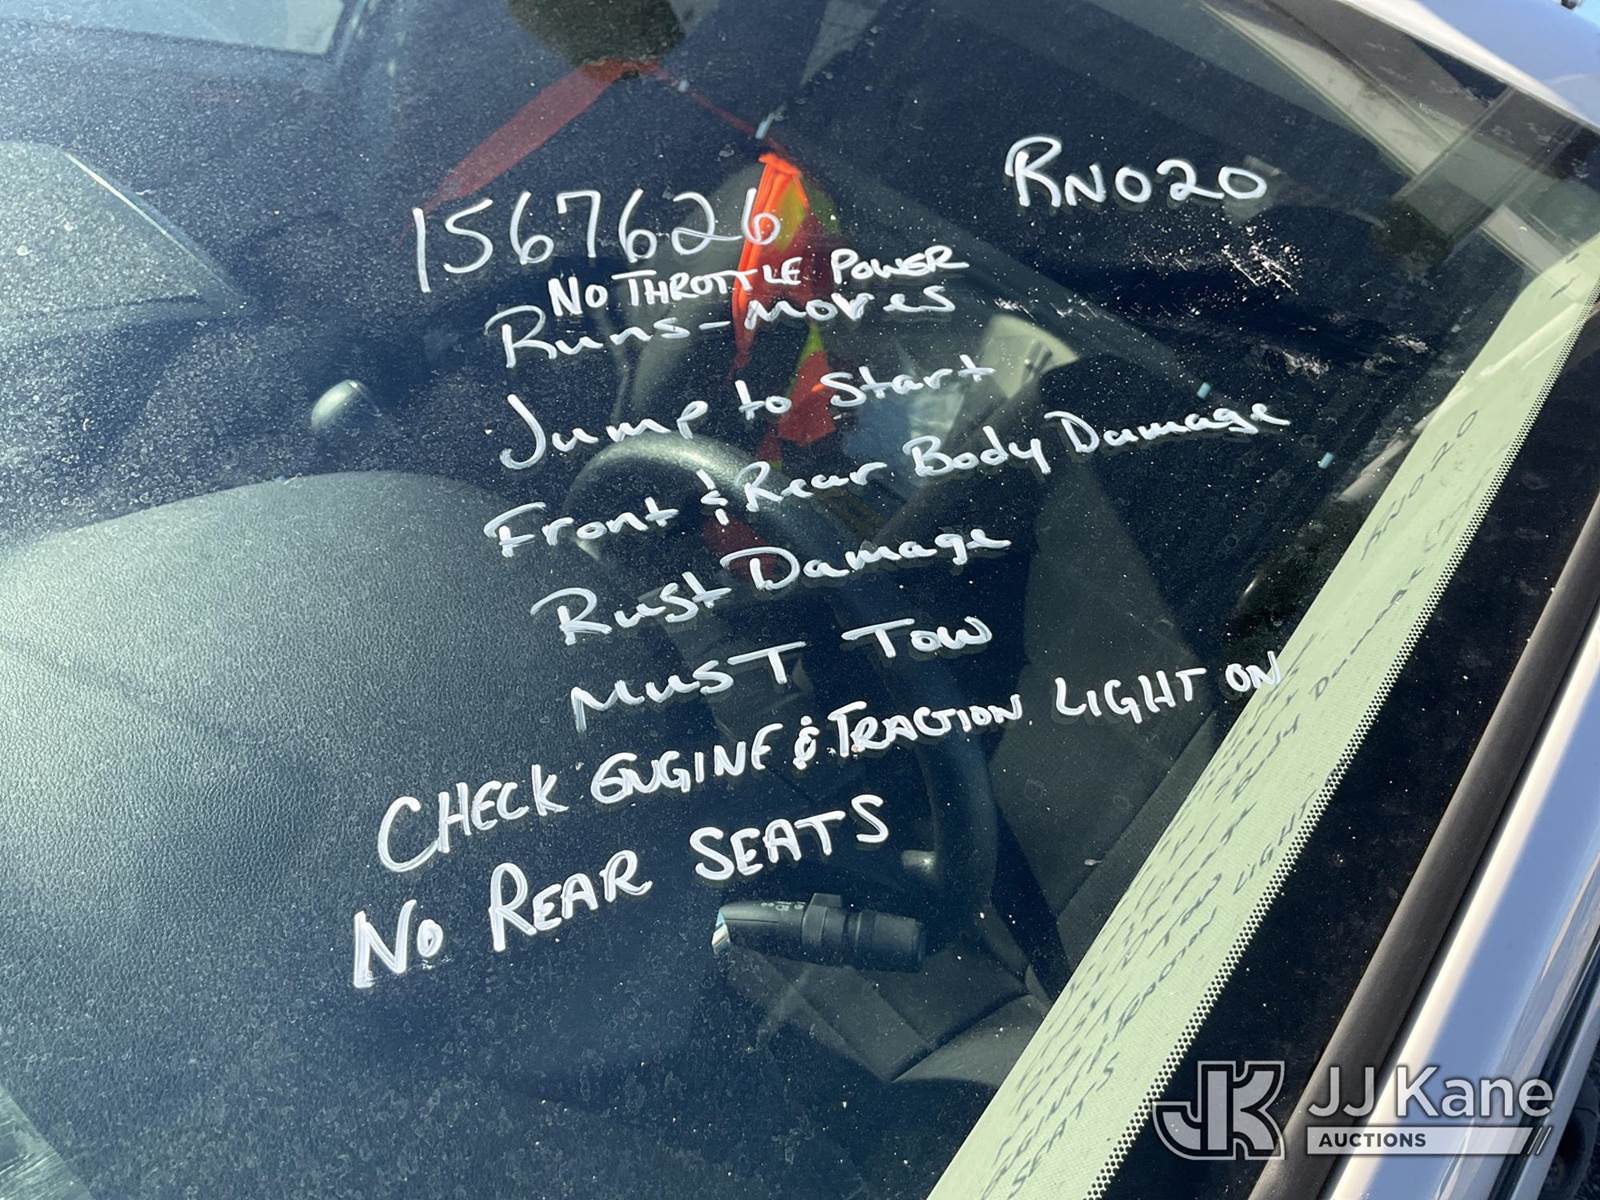 RN020
1567626
NO THROTTLE POWER
Runs-Moves
Jump to Start
Front & Rear Body Damage
Rust Damage
MUST TOW
CHECK ENGINE & TRACTION LIGHT ON
NO REAR SEATS
JK JJ Kane
AUCTIONS